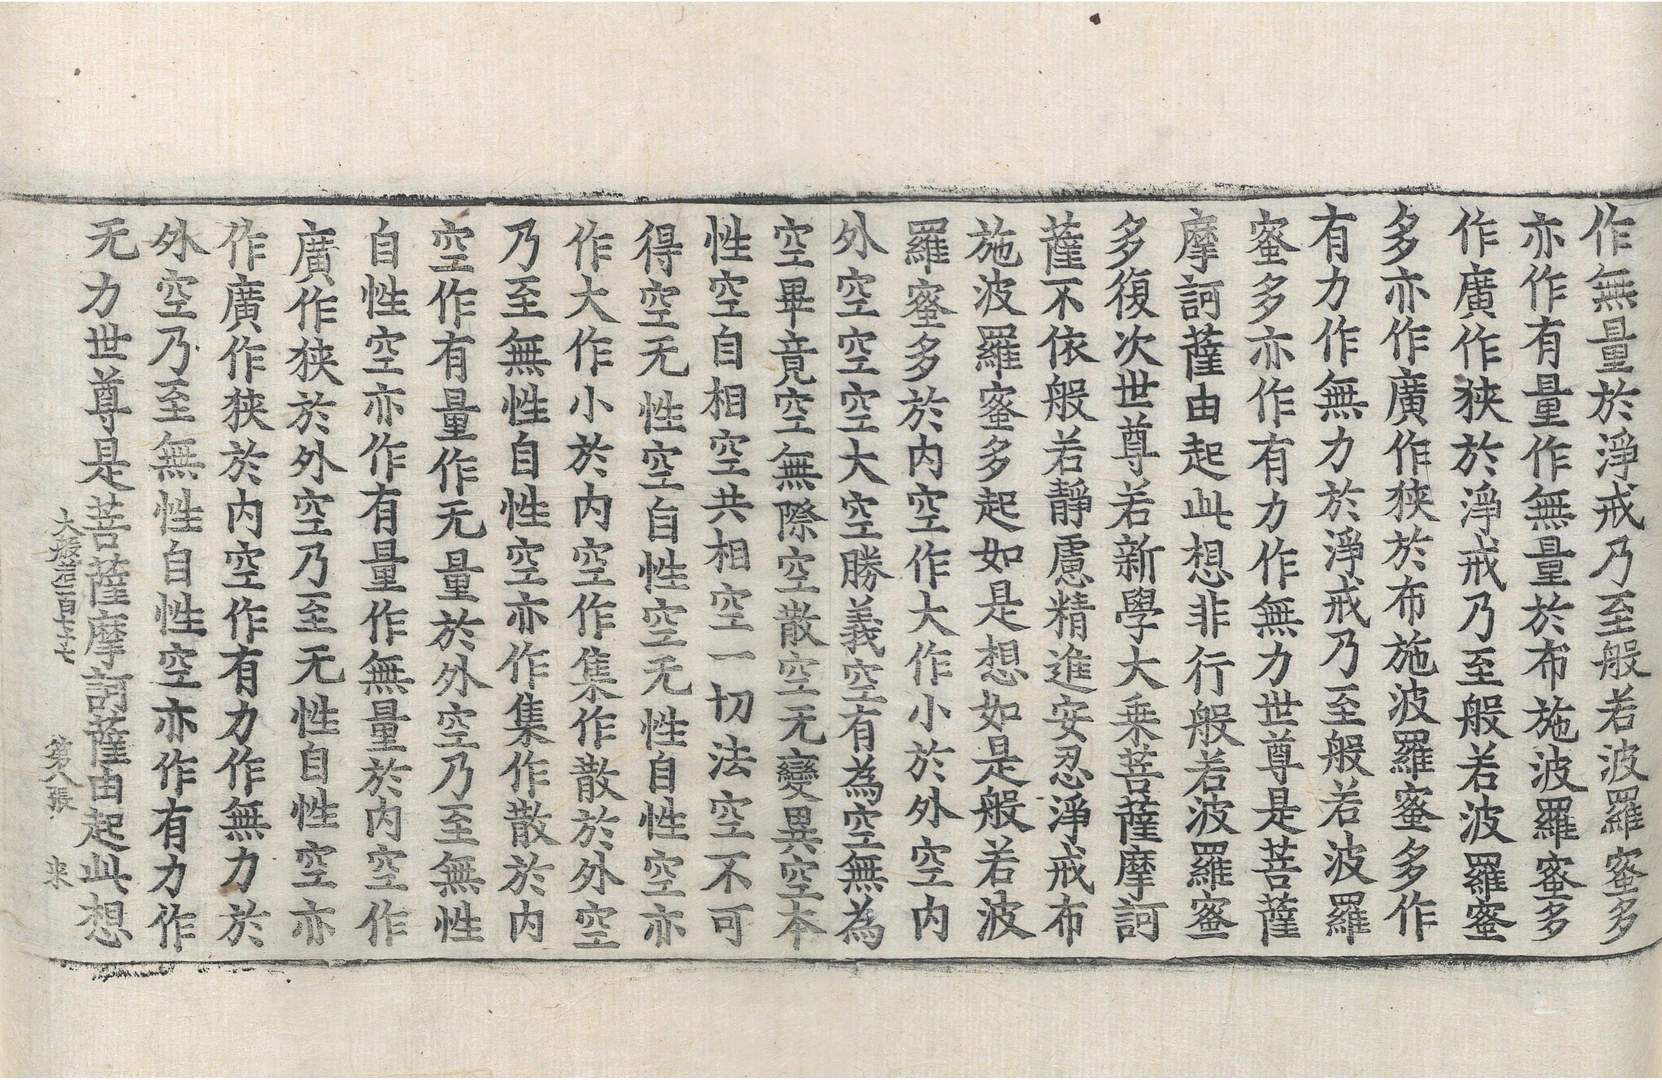 作無量於淨戒乃至般若波羅蜜多
亦作有量作無量於布施波羅蜜多
作廣作狹於淨戒乃至般若波羅蜜
多亦作廣作狹於布施波羅蜜多作
有力作無力於淨戒乃至般若波羅
蜜多亦作有力作無力世尊是菩薩
摩訶薩由起此想非行般若波羅蜜
多復次世尊若新學大乗菩薩摩訶
薩不依般若靜慮精進安忍淨戒布
施波羅蜜多起如是想如是般若波
羅蜜多於内空作大作小於外空内
外空空空大空勝義空有為空無為
空畢竟空無際空散空无變異空本
性空自相空共相空一切法空不可
得空无性空自性空无性自性空亦
作大作小於内空作集作散於外空
乃至無性自性空亦作集作散於内
空作有量作无量於外空乃至無性
自性空亦作有量作無量於内空作
廣作狹於外空乃至无性自性空亦
作廣作狹於内空作有力作無力於
外空乃至無性自性空亦作有力作
无力世尊是菩薩摩訶薩由起此想
大般若一百七十七 第八張 来